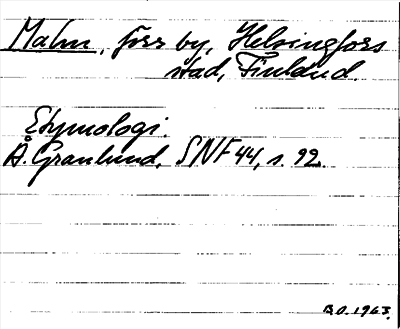 Malm, förr by, Helsingfors
stad, Finland.
Etymologi.
Å. Granlund, SNF 44, s. 92.
B.O. 1963.